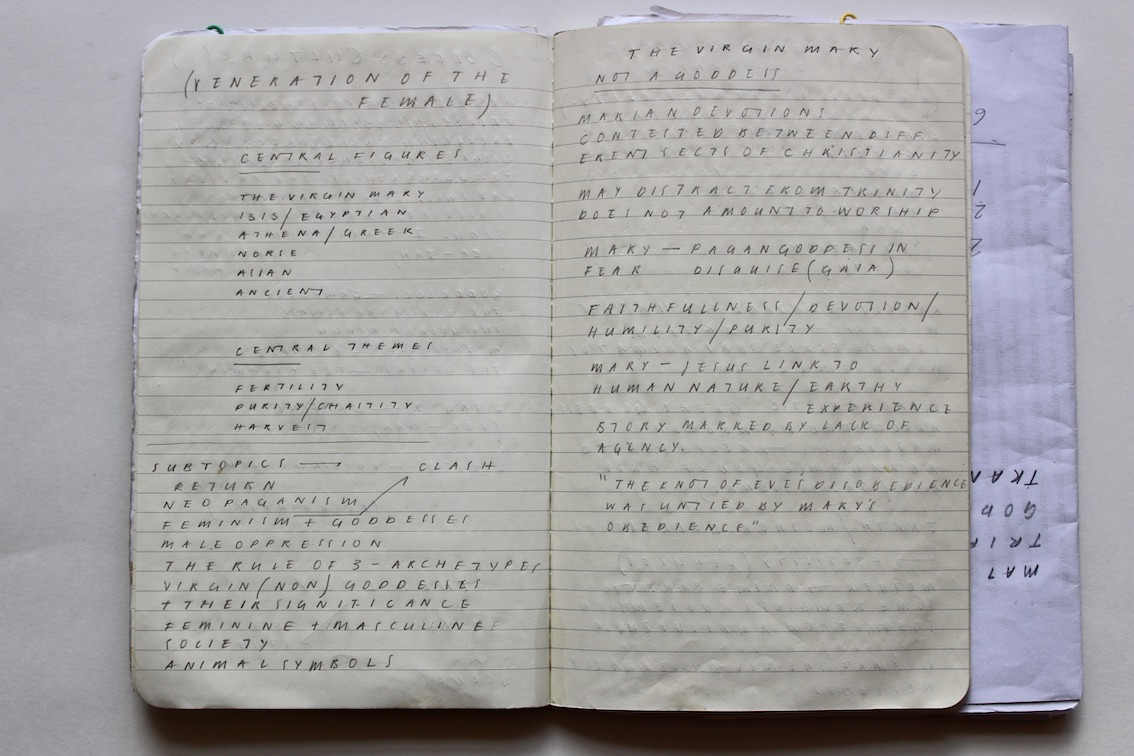 (VENERATION OF THE
FEMALE)
CENTRAL FIGURES
THE VIRGIN MARY
ISIS/EGYPTIAN
ATHENA/GREEK
NORSE
ASIAN
ANCIENT
CENTRAL THEMES
FERTILITY
PURITY/CHAITITY
HARVEST
SUBTOPICS → CLASH
RETURN
NEO PAGANISM
FEMINISM + GODDESSES
MALE OPPRESSION
THE RULE OF 3 - ARCHETYPES
VIRGIN (NON) GODDESSES
+ THEIR SIGNITICANCE
FEMININE + MASCULINE
SOCIETY
ANIMAL SYMBOLS
THE VIRGIN MARY
NOT A GODDESS
MARIAN DEVOTIONS
CONTESTED BETWEEN DIFF
ERENT SECTS OF CHRISTIANITY
MAY DISTRACT FROM TRINITY
DOES NOT AMOUNT TO WORSHIP
MARY — PAGAN GODDESS IN
FEAR DISGUISE (GAIA)
FAITHFULLNESS/DEVOTION/
HUMILITY/PURITY
MARY — JESUS LINK TO
HUMAN NATURE/EARTHY
EXPERIENCE
STORY MARKED BY LACK OF
AGENCY.
"THE KNOT OF EVE'S DISOBEDIENCE
WAS UNTIED BY MARY'S
OBEDIENCE"
MAT
TRIF
GOD
TRA